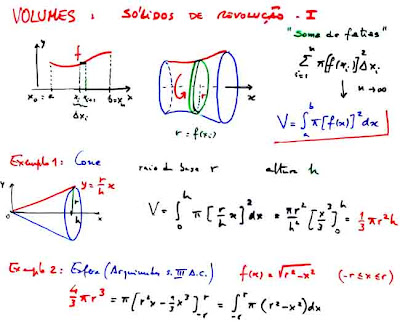 VOLUMES : SÓLIDOS DE REVOLUÇÃO - I
"Soma de fatias"
y
f
x₀=a xᵢ xᵢ₊₁ b=xₙ x
Δxᵢ
x
r = f(xᵢ)
n Σ i=1 π[f(xᵢ)]² Δxᵢ
↓ n→∞
V = ∫ₐᵇ π[f(x)]² dx
Exemplo 1: Cone raio da base r altura h
y
y = r/h x
r
0 h x
V = ∫₀ʰ π [r/h x]² dx = πr²/h² [x³/3]₀ʰ = 1/3 πr²h
Exemplo 2: Esfera (Arquimedes s. III A.C.) f(x) = √(r²-x²) (-r≤x≤r)
4/3 πr³ = π[r²x - 1/3 x³]₋ᵣʳ = ∫₋ᵣʳ π (r²-x²) dx